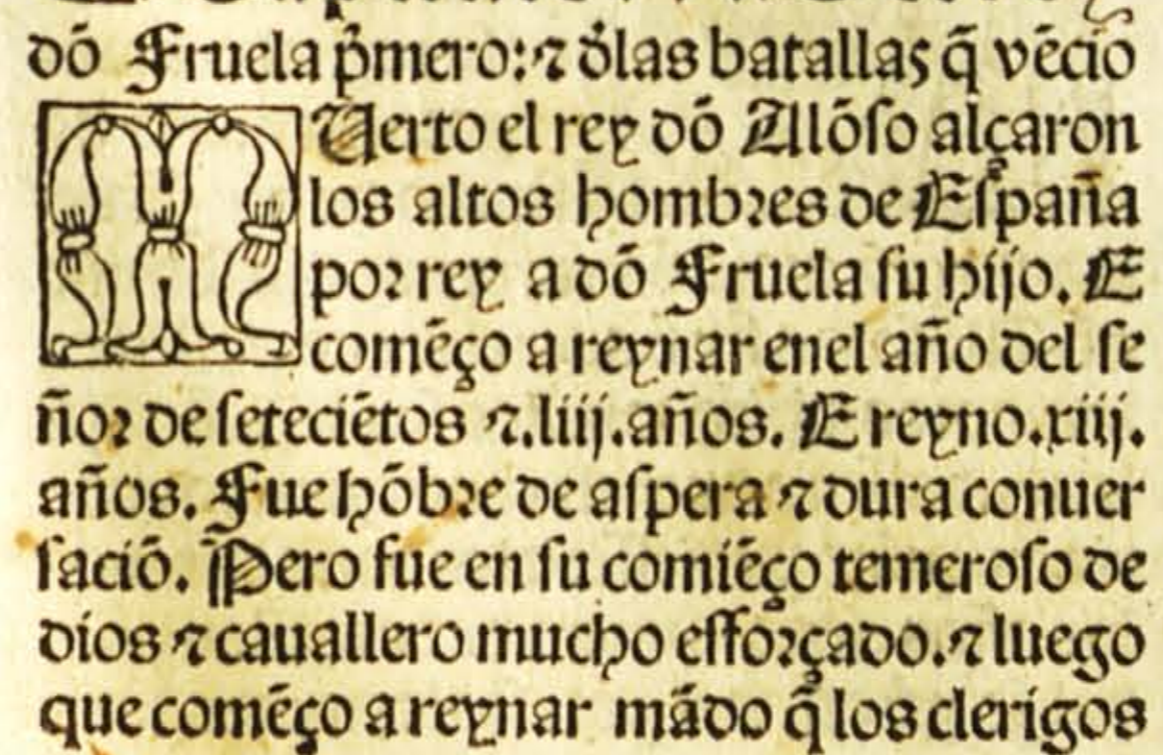 dõ Fruela p̃mero: ⁊ d̃las batallas q̃ vẽcio
MUerto el rey dõ Alõſo alçaron
los altos hombꝛes de Eſpaña
poꝛ rey a dõ Fruela ſu hijo. E
comẽço a reynar enel año del ſe
ñoꝛ de ſeteciẽtos ⁊.liij.años. E reyno.xiij.
años. Fue hõbꝛe de aſpera ⁊ dura conuer
ſaciõ. Pero fue en ſu comiẽço temeroſo de
dios ⁊ cauallero mucho eſfoꝛçado.⁊ luego
que comẽço a reynar mãdo q̃ los clerigos